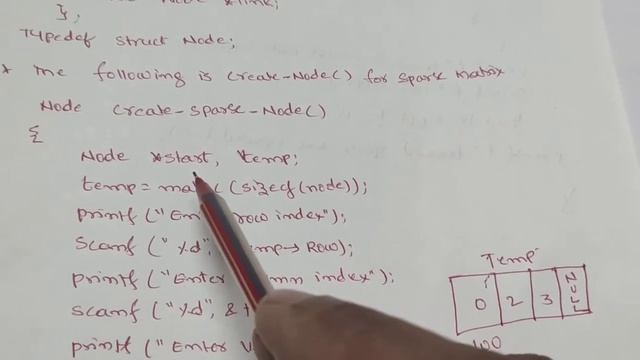 };
Typedef struct Node;
* The following is create-Node() for sparse matrix
Node create-sparse-Node()
{
Node *start, *temp;
temp = (sizeof(node));
printf ("row index");
scanf ("%d", → Row);
printf ("Enter index");
scanf ("%d", &
printf ("Enter
Temp
0 2 3 NULL
100